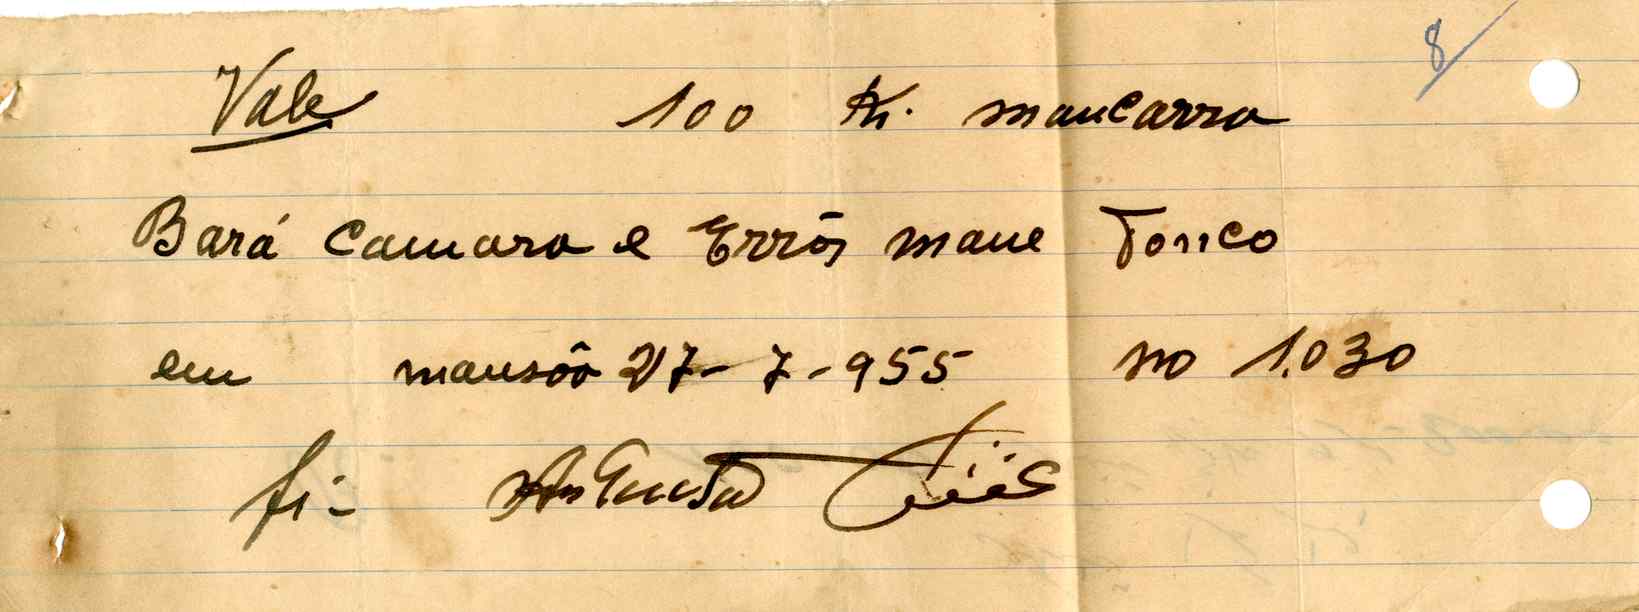 8/
Vale 100 K. mancarra
Bará Camara e Errõs mane Tonco
em mansôa 27-7-955 no 1.030
fi-